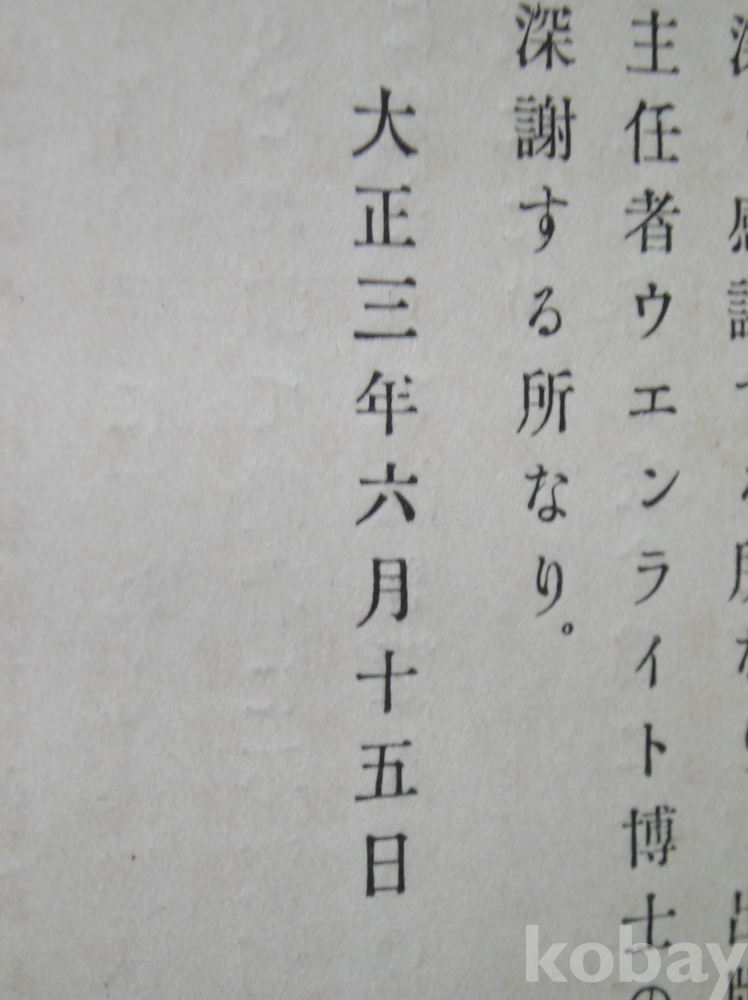 感謝する所なり
主任者ウエンライト博士の
深謝する所なり。
大正三年六月十五日
kobay